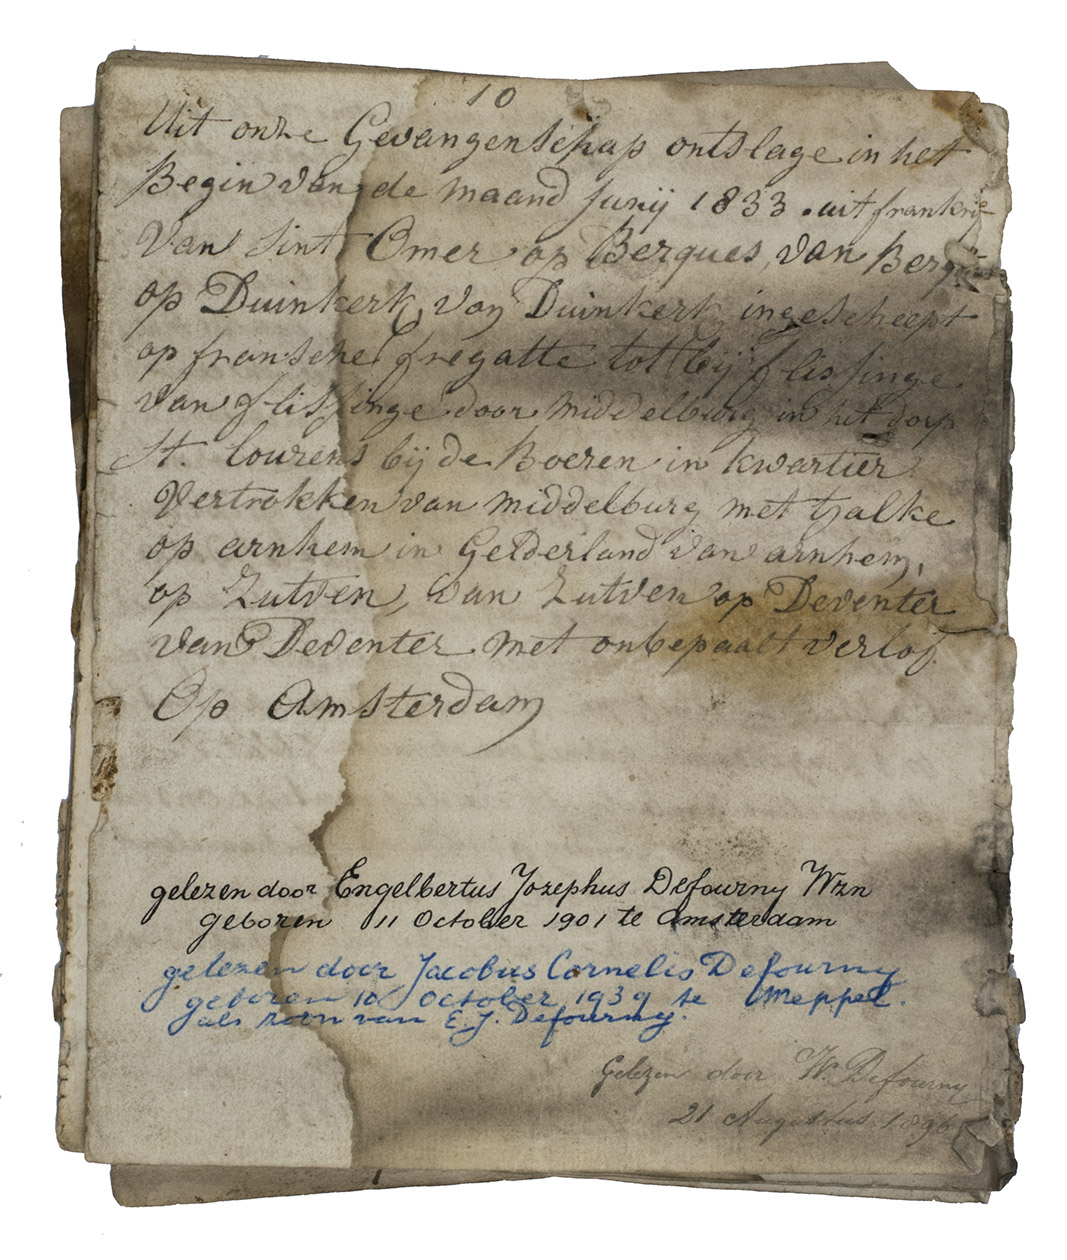 10
Uit onze Gevangenschap ontslage in het
Begin van de maand Junij 1833. uit frankrij
Van Sint Omer op Bergues, van Bergues
op Duinkerk, van Duinkerk ingescheept
op fransche fregatte tot bij flissinge
van flissinge door Middelburg in het dorp
St. Lourens bij de Boeren in kwartier
Vertrokken van Middelburg met tjalke
op arnhem in Gelderland van arnhem,
op Zutven, van Zutven op Deventer
van Deventer met onbepaalt verlof
Op Amsterdam
gelezen door Engelbertus Jozephus Defourny Wzn
geboren 11 October 1901 te Amsterdam
gelezen door Jacobus Cornelis Defourny
geboren 10 October 1939 te Meppel.
als zoon van E.J. Defourny.
Gelezen door W. Defourny
21 Augustus 1896